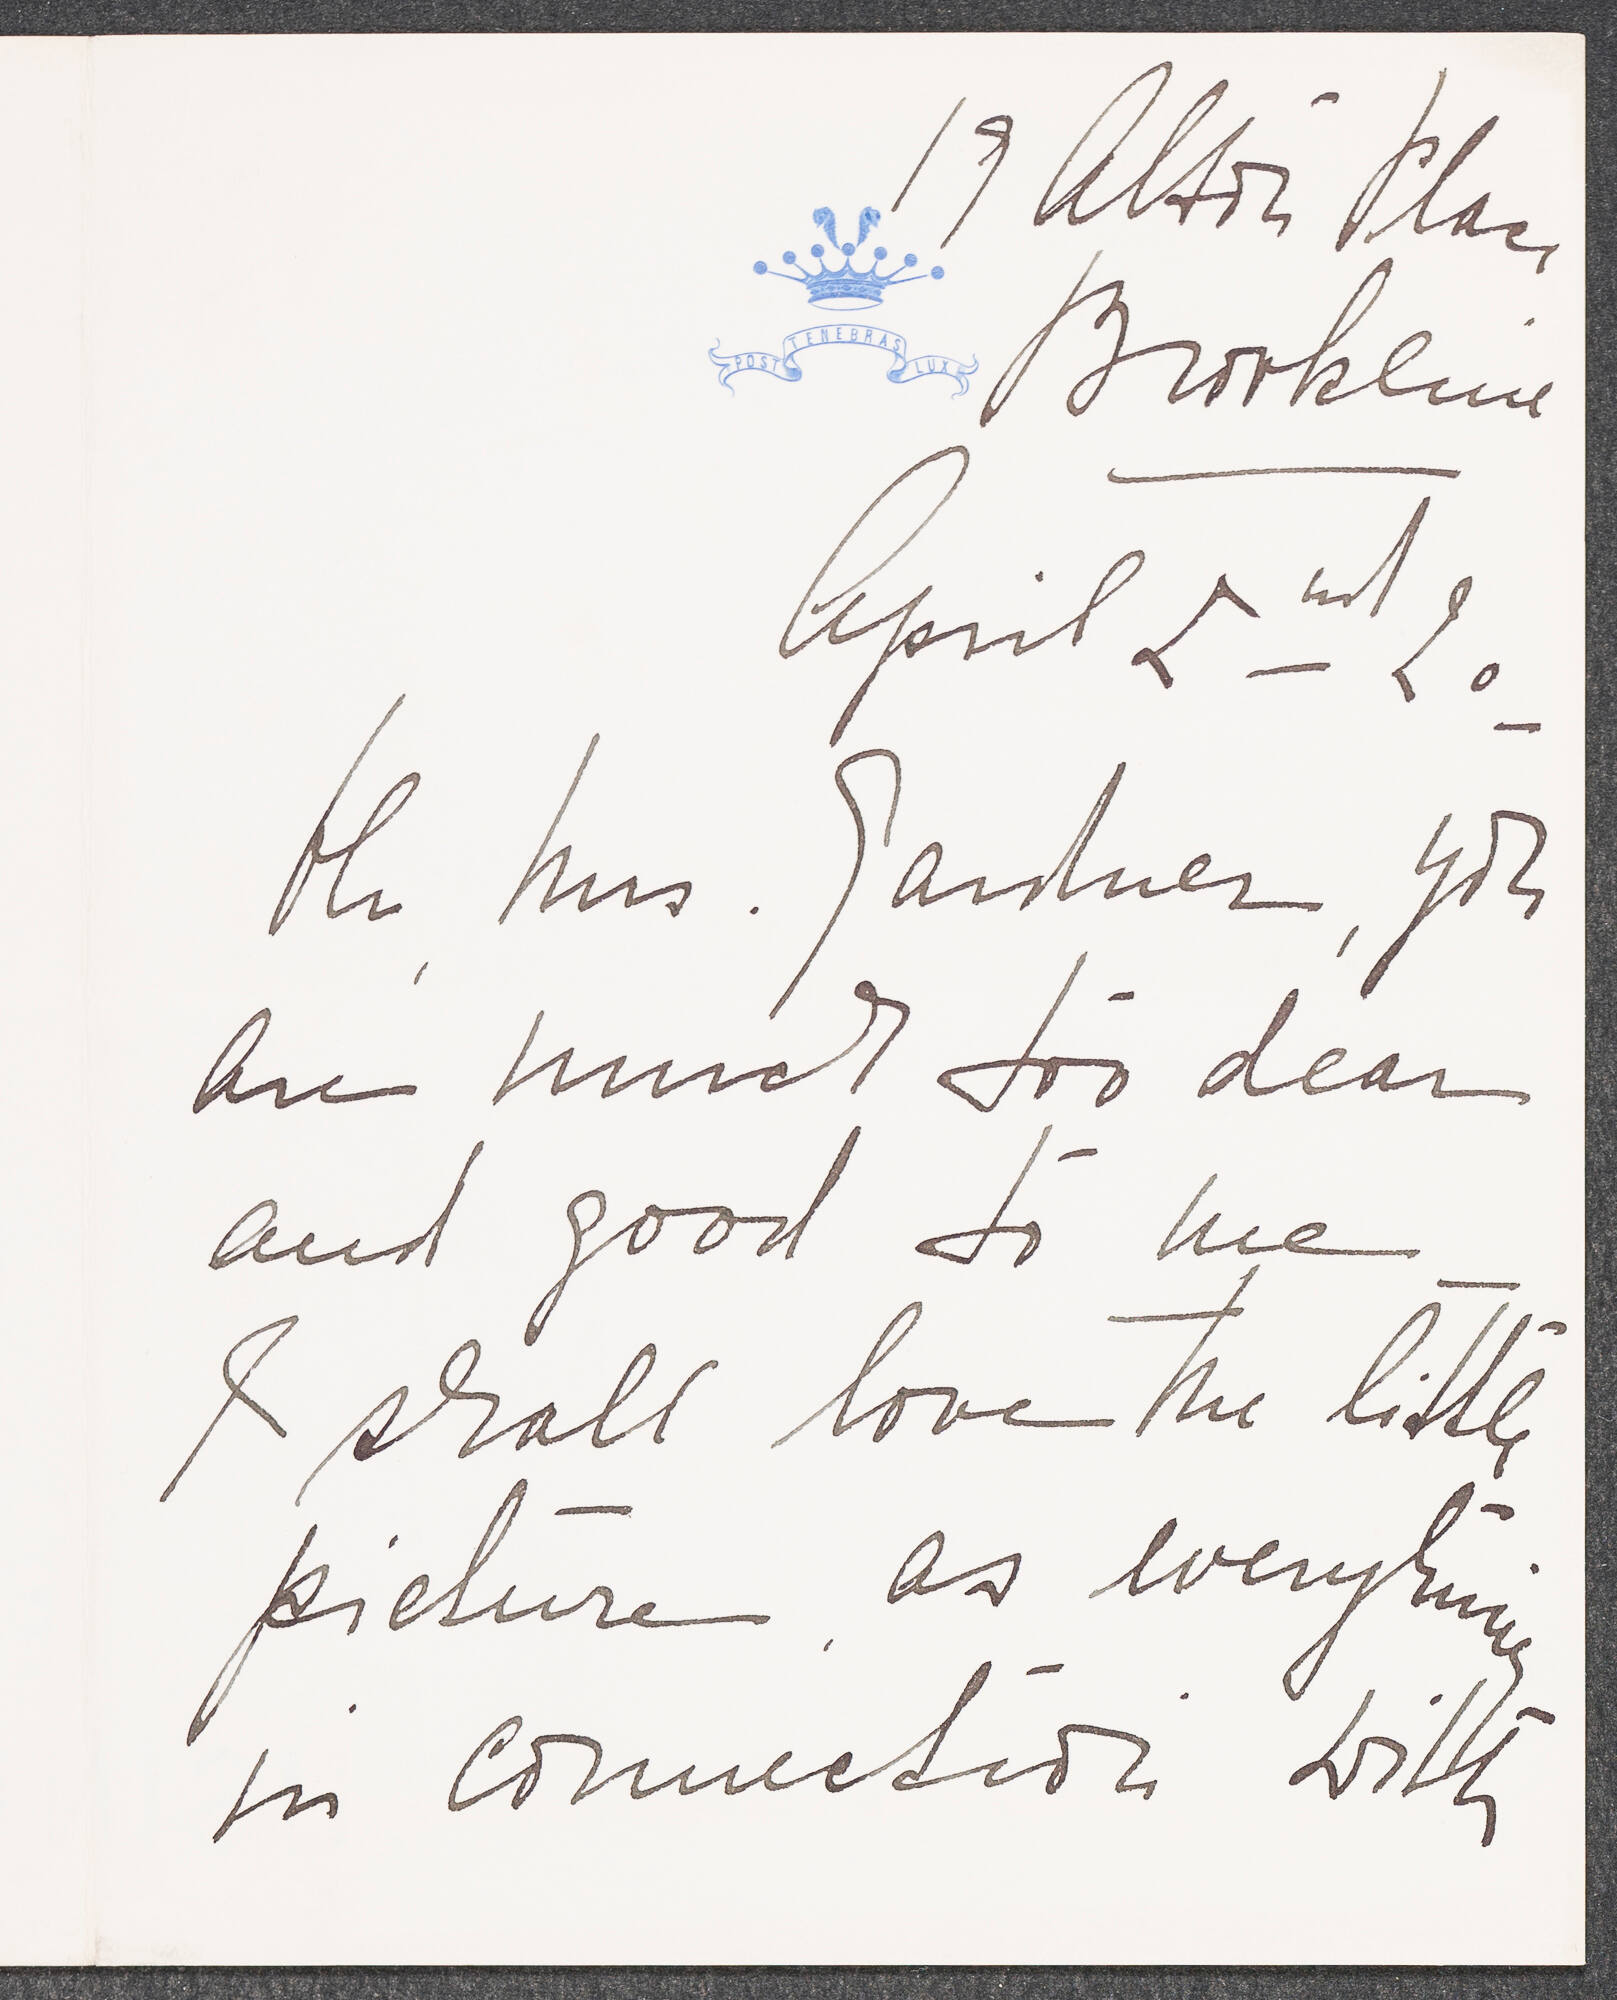 19 Alton Place
Brookline
POST TENEBRAS LUX
April 2nd 20
Oh, Mrs. Gardner, you
are much too dear
and good to me
I shall love the little
picture, as everything
in connection with